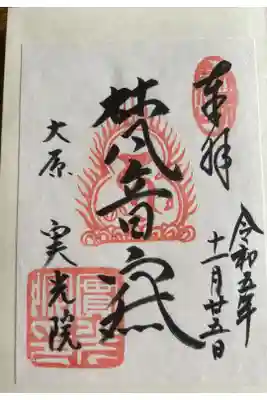 奉拝
令和五年
十一月廿五日
梵音
大原
実光院